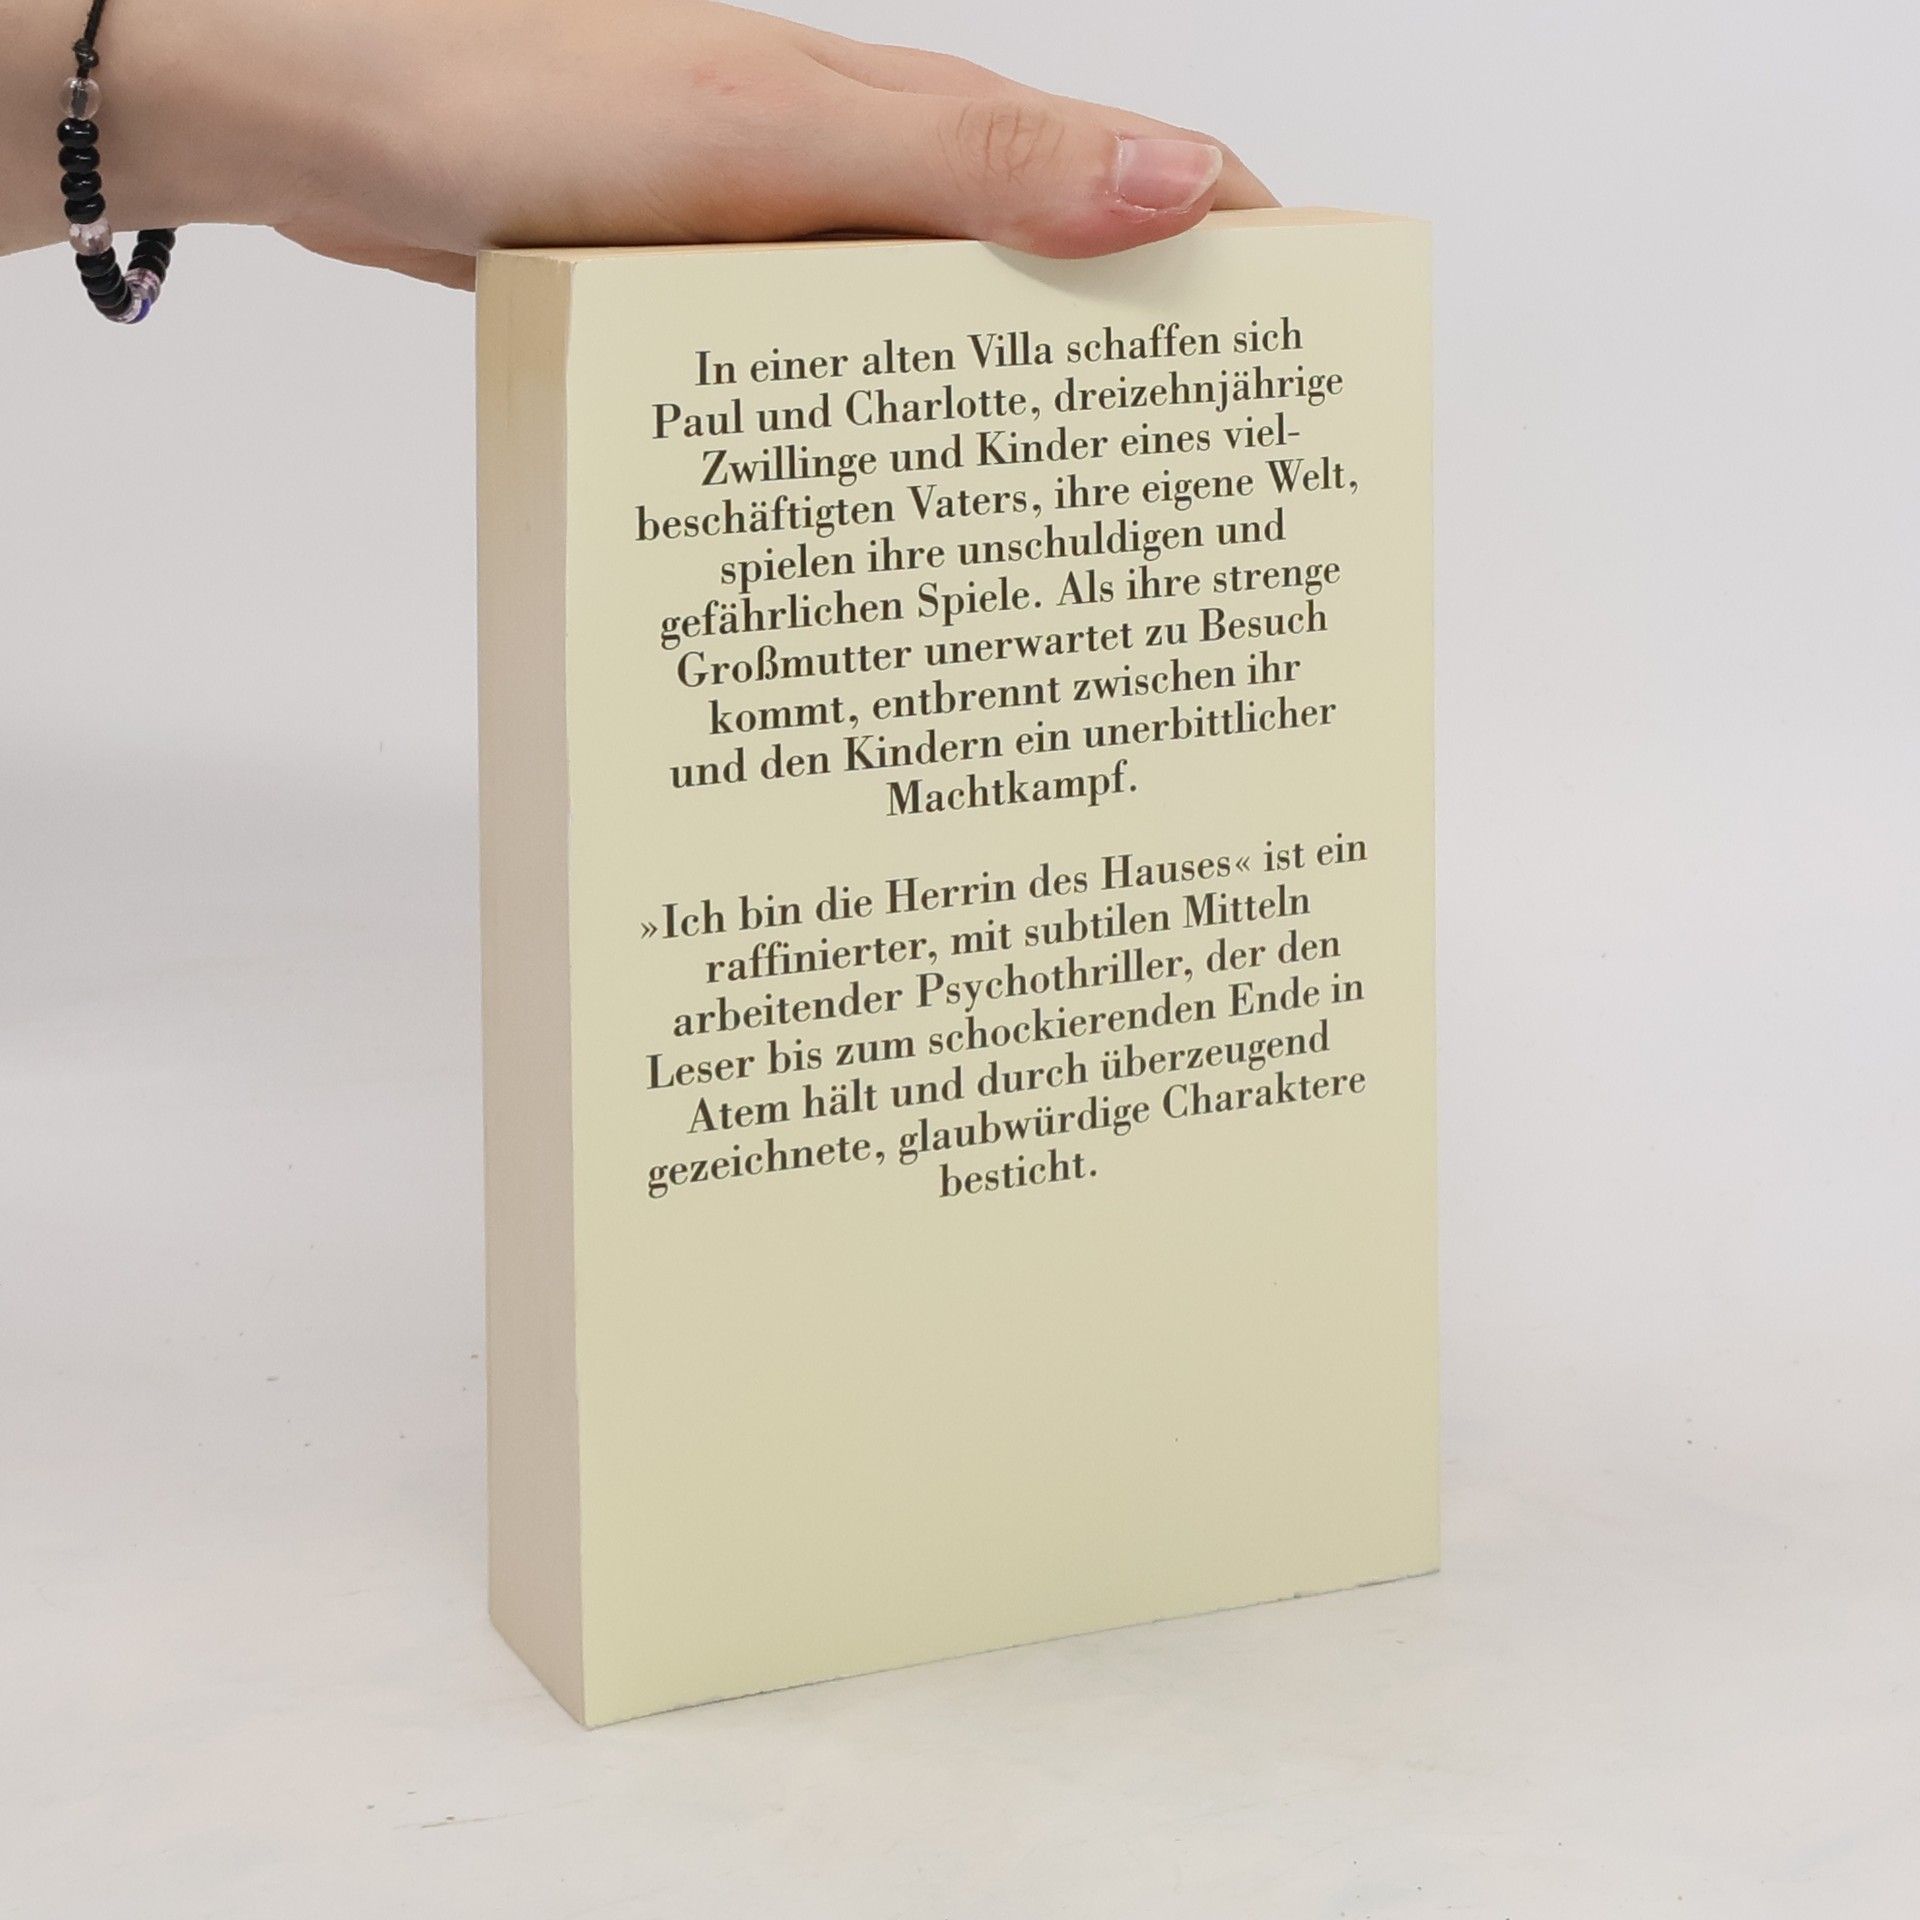 In einer alten Villa schaffen sich
Paul und Charlotte, dreizehnjährige
Zwillinge und Kinder eines viel-
beschäftigten Vaters, ihre eigene Welt,
spielen ihre unschuldigen und
gefährlichen Spiele. Als ihre strenge
Großmutter unerwartet zu Besuch
kommt, entbrennt zwischen ihr
und den Kindern ein unerbittlicher
Machtkampf.
»Ich bin die Herrin des Hauses« ist ein
raffinierter, mit subtilen Mitteln
arbeitender Psychothriller, der den
Leser bis zum schockierenden Ende in
Atem hält und durch überzeugend
gezeichnete, glaubwürdige Charaktere
besticht.